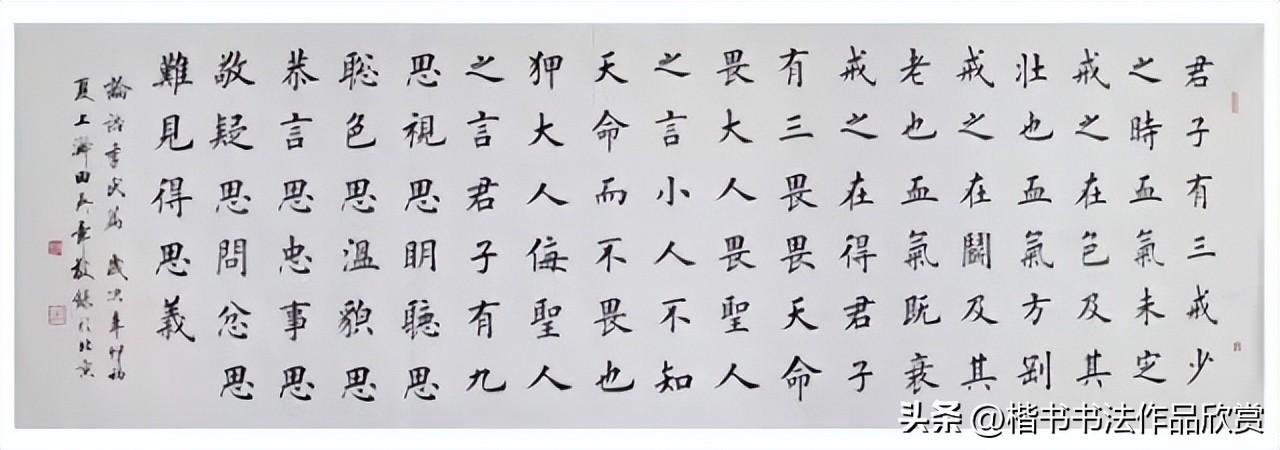 君子有三戒少
之時血氣未定
戒之在色及其
壯也血氣方剛
戒之在鬬及其
老也血氣既衰
戒之在得君子
有三畏畏天命
畏大人畏聖人
之言小人不知
天命而不畏也
狎大人侮聖人
之言君子有九
思視思明聽思
聡色思溫貌思
恭言思忠事思
敬疑思問忿思
難見得思義
論語季氏篇 歲次年初
夏上澣田英章敬錄於北京
头条 @楷书书法作品欣赏